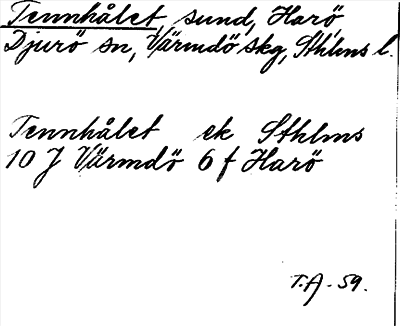 Tennhålet, sund, Harö,
Djurö sn, Värmdö skg, Sthlms l.
Tennhålet ek Sthlms
10 J Värmdö 6 f Harö
T.A - 59.